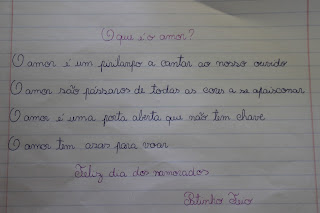 O que é o amor?
O amor é um pirilampo a cantar ao nosso ouvido
O amor são pássaros de todas as cores a se apaixonar
O amor é uma porta aberta que não tem chave
O amor tem asas para voar
Feliz dia dos namorados
Patinho Feio